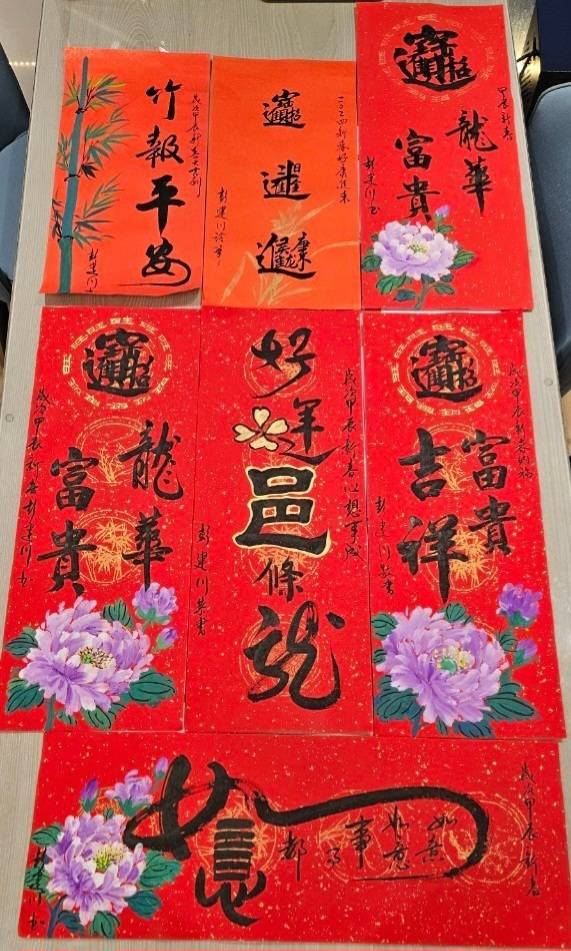 竹報平安
歲次甲辰新春大吉利
二〇二四新春好康進來
彭建川
招財進寶
龍華
富貴
甲辰新春
彭建川書
招財進寶
龍華
富貴
歲次甲辰新春彭建川書
好運
邑
條
龍
歲次甲辰新春心想事成
彭建川恭書
招財進寶
富貴
吉祥
歲次甲辰新春納福
彭建川恭書
如意
如意
如意
事事
都
歲次甲辰新春
彭建川書